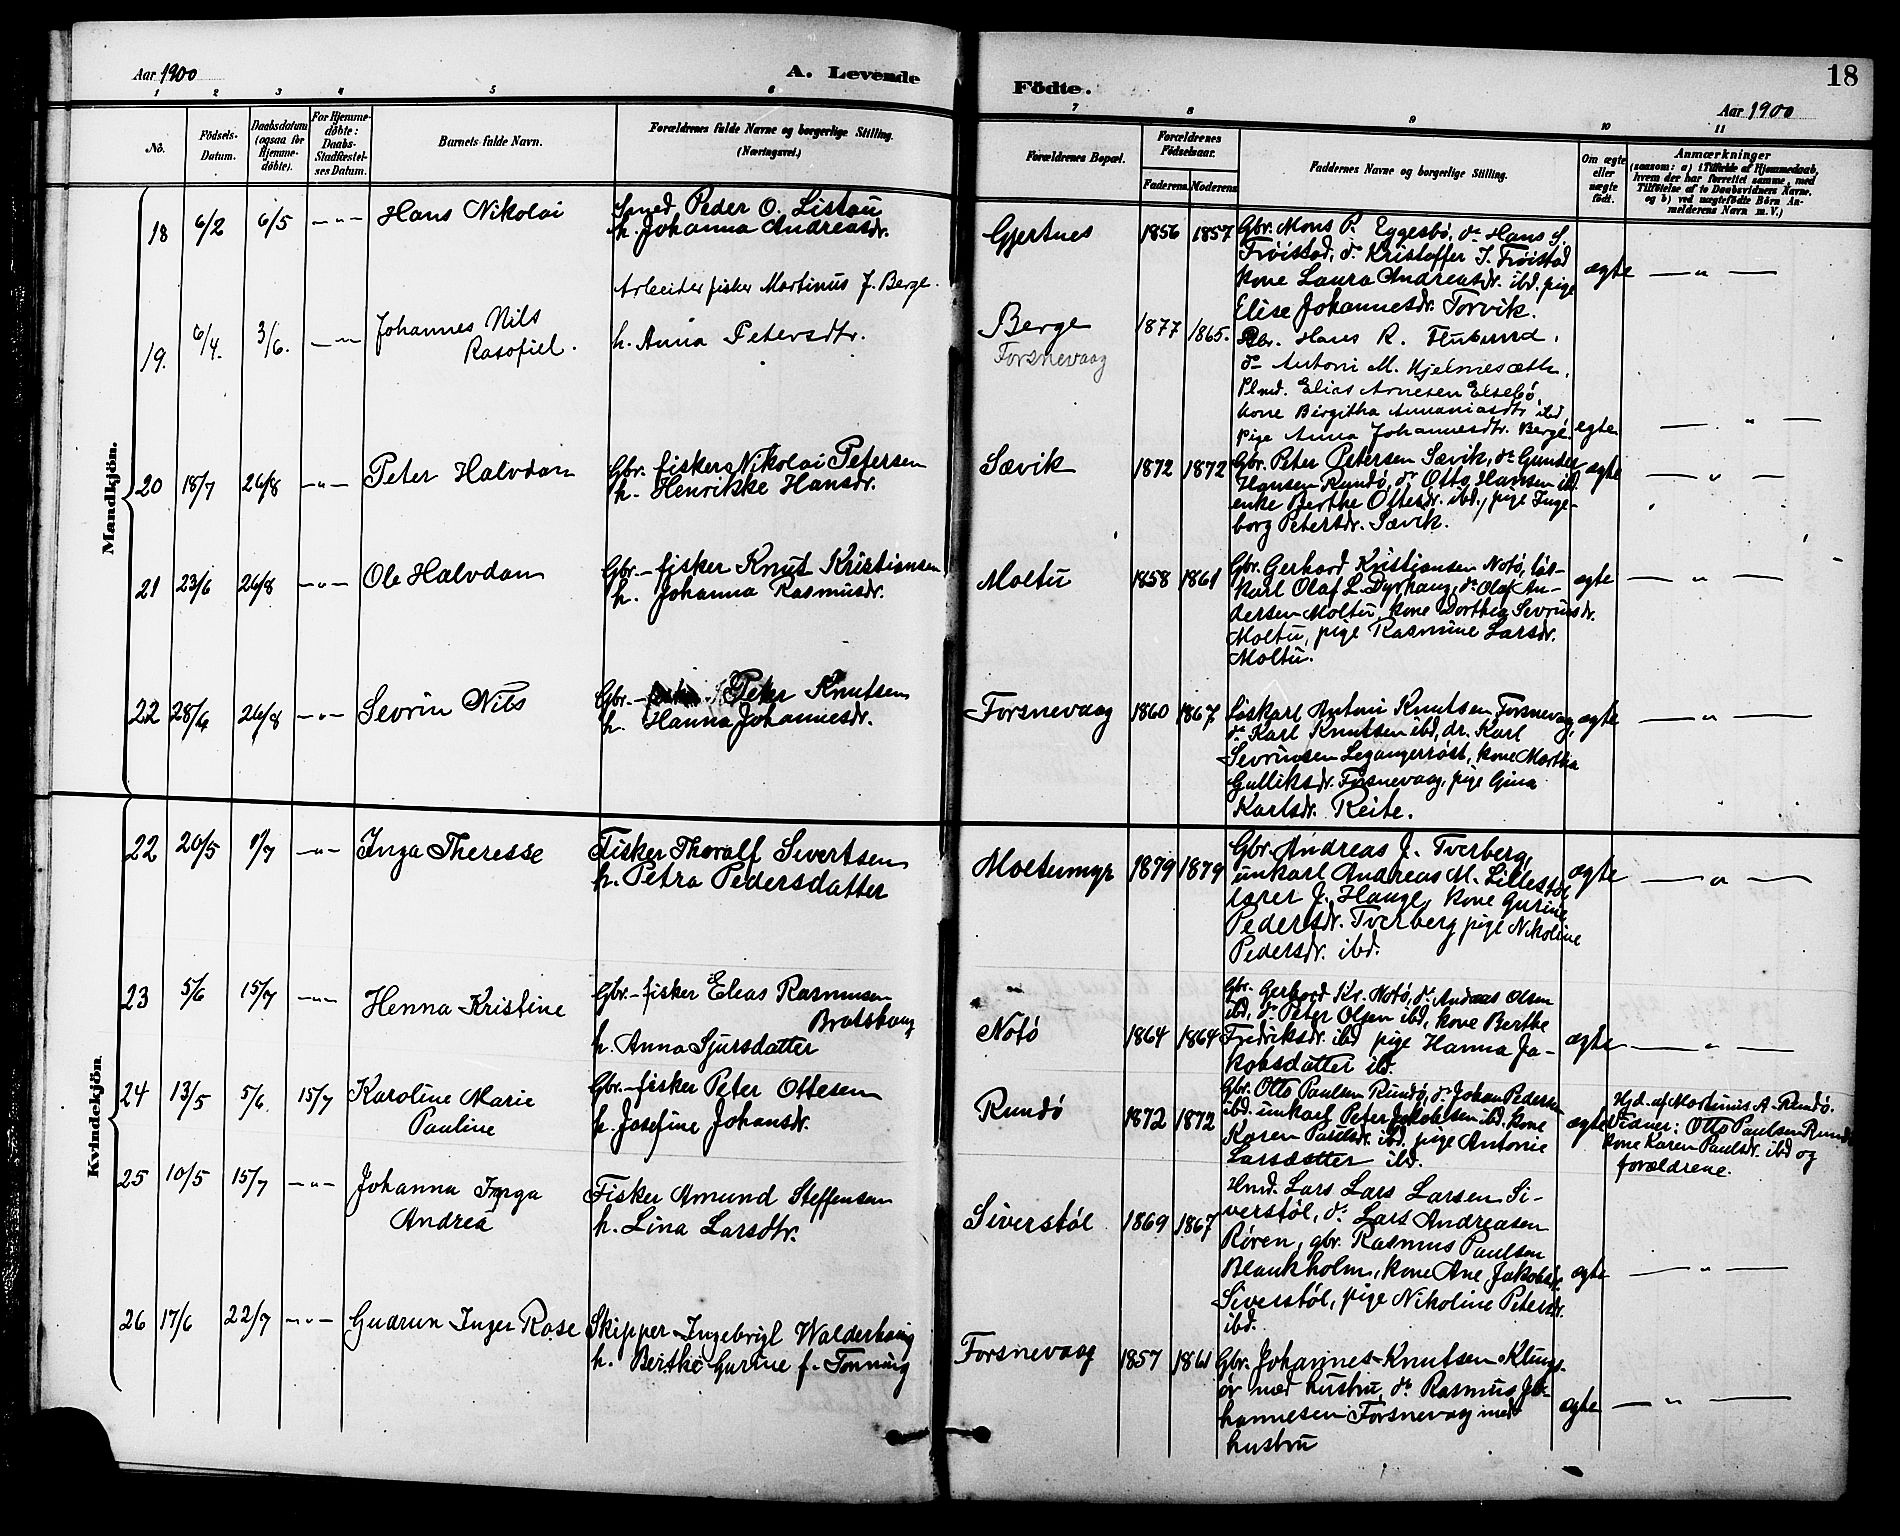 Aar 1900
A. Levende
Födte.
18
Aar 1900
1 2 3 4 5 6 7 8 9 10 11
No.
Födsels-
Datum.
Daabsdatum
(ogsaa for
Hjemme-
døbte).
For Hjemme-
døbte:
Daabs-
Stadfæstel-
ses Datum.
Barnets fulde Navn.
Forældrenes fulde Navne og borgerlige Stilling.
(Næringsvei.)
Forældrenes Bopæl.
Forældrenes
Födselsaar.
Faderens. Moderens.
Faddernes Navne og borgerlige Stilling.
Om ægte
eller
uægte
födt.
Anmærkninger
(saasom: a) i Tilfælde af Hjemmedaab,
hvem der har forrettet samme, med
Tilföielse af to Daabsvidners Navne,
og b) ved uægtefødte Börn An-
melderens Navn m. V.)
Mandkjön.
18 6/2 6/5 —"— Hans Nikolai
Smed Peder O. Listau
h. Johanna Andreasdr.
Gjertnes 1856 1857
Gbr. Mons P. Eggesbö, do Hans S.
Fröistad, do Kristoffer J. Fröistad
kone Laura Andreasdr. ibd. pige
Elise Johannesdr. Torvik.
ægte — " —
19. 6/4. 3/6. —"— Johannes Nils
Rasofiel.
Arbeider fisker Martinus J. Berge.
h. Anna Petersdtr.
Berge
Forsnevaag
1877 1865.
Gbr. Hans R. Flusund,
do Antoni M. Hjelmesæth,
Elias Arnesen Eltebö,
kone Birgitha Annaniasdtr ibd,
pige Anna Johannesdtr. Berge.
egte — " —
20 18/7 26/8 —"— Peter Halvdan
Gbr. fisker Nikolai Petersen
h. Henrikke Hansdr.
Sævik 1872 1872
Gbr. Peter Petersen Sævik, do Gunder
Hansen Rundö, do Otto Hansen ibd.
enke Berthe Ottesdr. ibd., pige Inge-
borg Petersdr. Sævik.
ægte — " —
21 23/6 26/8 —"— Ole Halvdan
Gbr.-fisker Knut Kristiansen
h. Johanna Rasmusdr.
Moltu 1858 1861
Gbr. Gerhard Kristiansen Notö, løs-
karl Olaf L. Dyrhaug, do Olaf An-
dersen Moltu, kone Dorthea Sevrinsdr.
Moltu, pige Rasmine Larsdr.
Moltu.
ægte — " —
22 28/6 26/8 —"— Sevrin Nils
Gbr.- Peter Knutsen
h. Hanna Johannesdr.
Forsnevaag 1860 1867
Løskarl Antoni Knutsen Forsnevaag,
do Karl Knutsen ibd, dr. Karl
Sevrinsen Leganger röst, kone Martha
Gulliksdr. Forsnevaag, pige Gina
Karlsdr. Reite.
ægte — " —
Kvindekjön.
22 20/5 1/7 —"— Inga Theresse
Fisker Thoralf Sivertsen
h. Petra Pedersdatter
Moltumyr 1879 1879
Gbr. Andreas J. Tverberg,
unkarl Andreas M. Lillestöl
lærer J. Hauge, kone Gurine
Pedersdr. Tverberg pige Nikoline
Pedersdr. ibd.
ægte — " —
23 5/6 15/7 —"— Henna Kristine
Gbr.-fisker Elias Rasmusen
Bratshaug
h. Anna Sjursdatter
Notö 1864 1864
Gbr. Gerhard Kr. Notö, do Andreas Olsen
ibd, do Peter Olsen ibd, kone Berthe
Fredriksdr. ibd pige Hanna Ja-
kobsdatter ibd.
ægte — " —
24 13/5 5/6. 15/7 Karoline Marie
Pauline
Gbr.-fisker Peter Ottesen
h. Josefine Johansdr.
Rundö 1872 1872
Gbr. Otto Paulsen Rundö, do Johan Pedersen
ibd. unkarl Peter Jakobsen ibd. kone
Karen Paulsdr. ibd. pige Antonie
Larsdatter ibd.
ægte
Hjd. af Martinus A. Rundö.
Vidner: Otto Paulsen Rundö
kone Karen Paulsdr. ibd og
forældrene.
25 10/5 15/7 —"— Johanna Inga
Andrea
Fisker Amund Steffensen
h. Lina Larsdtr.
Siverstøl 1869 1867
Hmd. Lars Lars Larsen Si-
verstøl, do Lars Andreasen
Røren, gbr. Rasmus Paulsen
Blankholm, kone Ane Jakobsdr.
Siverstøl, pige Nikoline Petersdr.
ibd.
ægte — " —
26 17/6 22/7 —"— Gudrun Inger Rose
Skipper Ingebrigt Walderhaug
h. Berthe Gurine f. Tonning
Forsnevaag 1857 1861
Gbr. Johannes Knutsen Klungs-
ør med hustru, do Rasmus Jo-
hannesen Forsnevaag med
hustru
ægte — " —